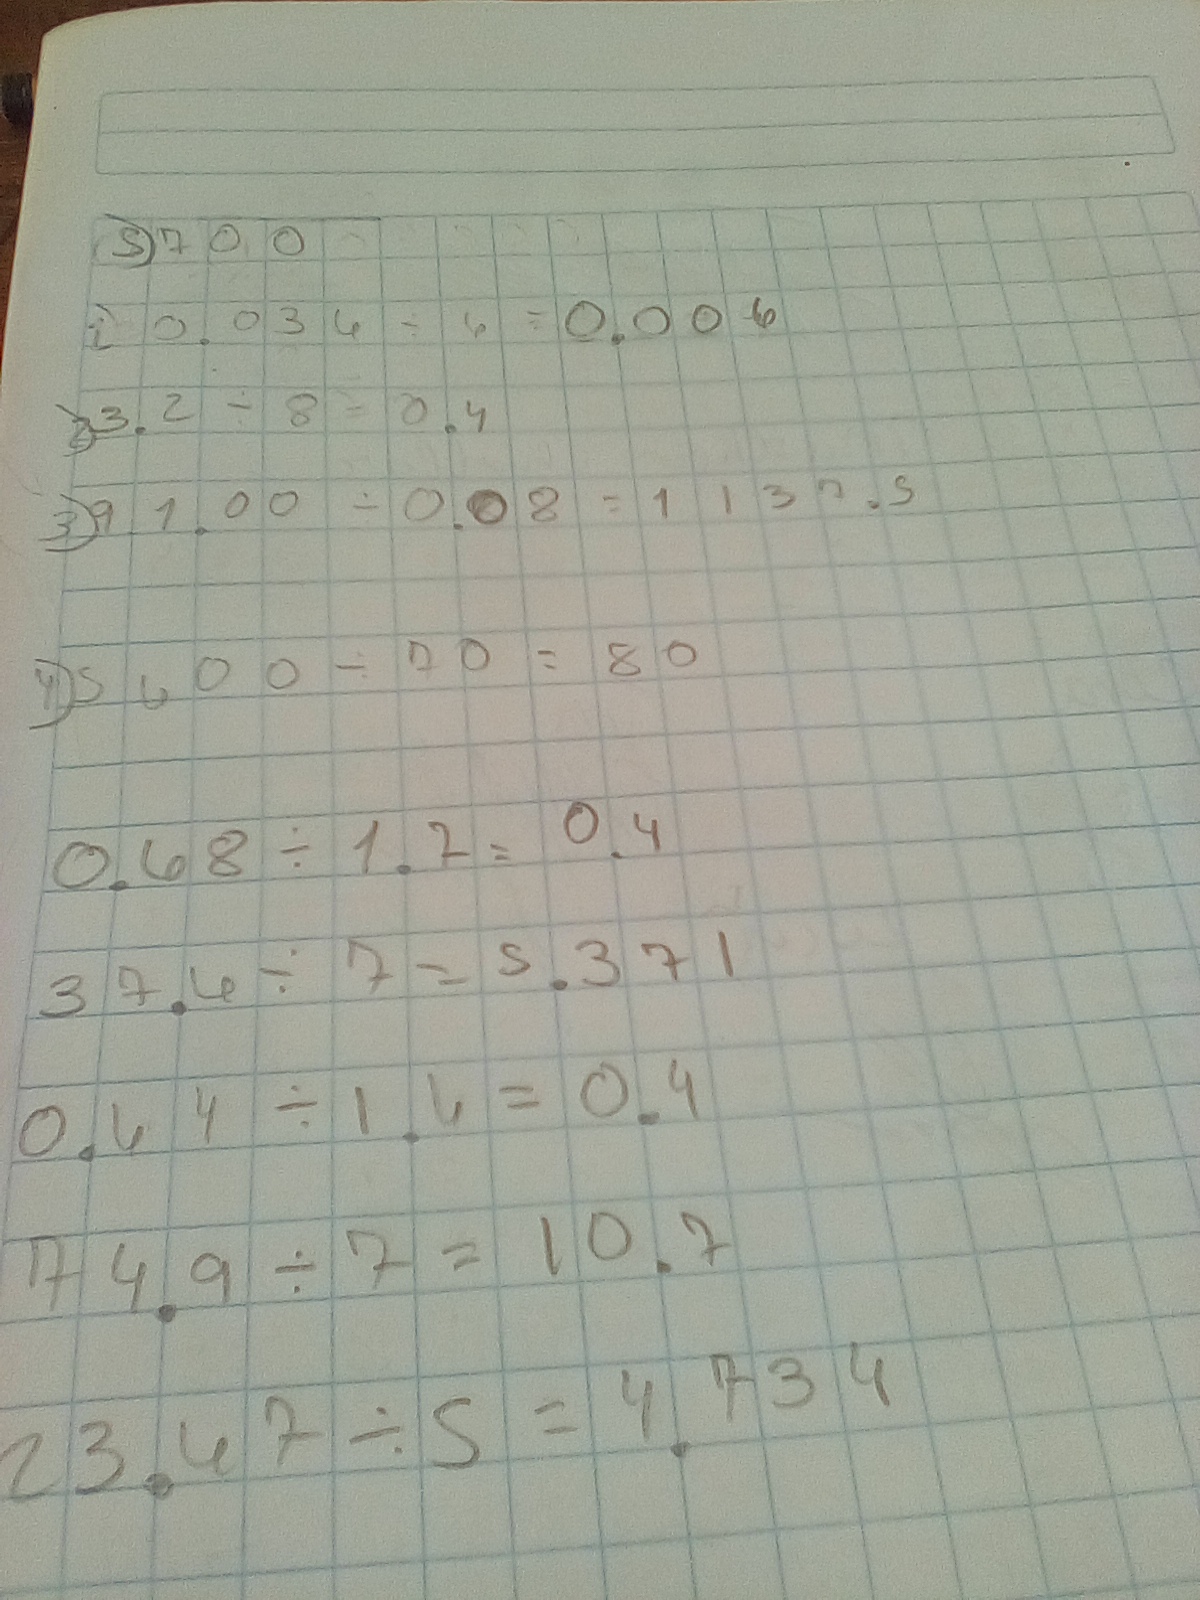 5) 700
1) 0.036 ÷ 6 = 0.006
2) 3.2 ÷ 8 = 0.4
3) 91.00 ÷ 0.08 = 1137.5
4) 5600 ÷ 70 = 80
0.68 ÷ 1.7 = 0.4
37.6 ÷ 7 = 5.371
0.64 ÷ 1.6 = 0.4
74.9 ÷ 7 = 10.7
23.67 ÷ 5 = 4.734